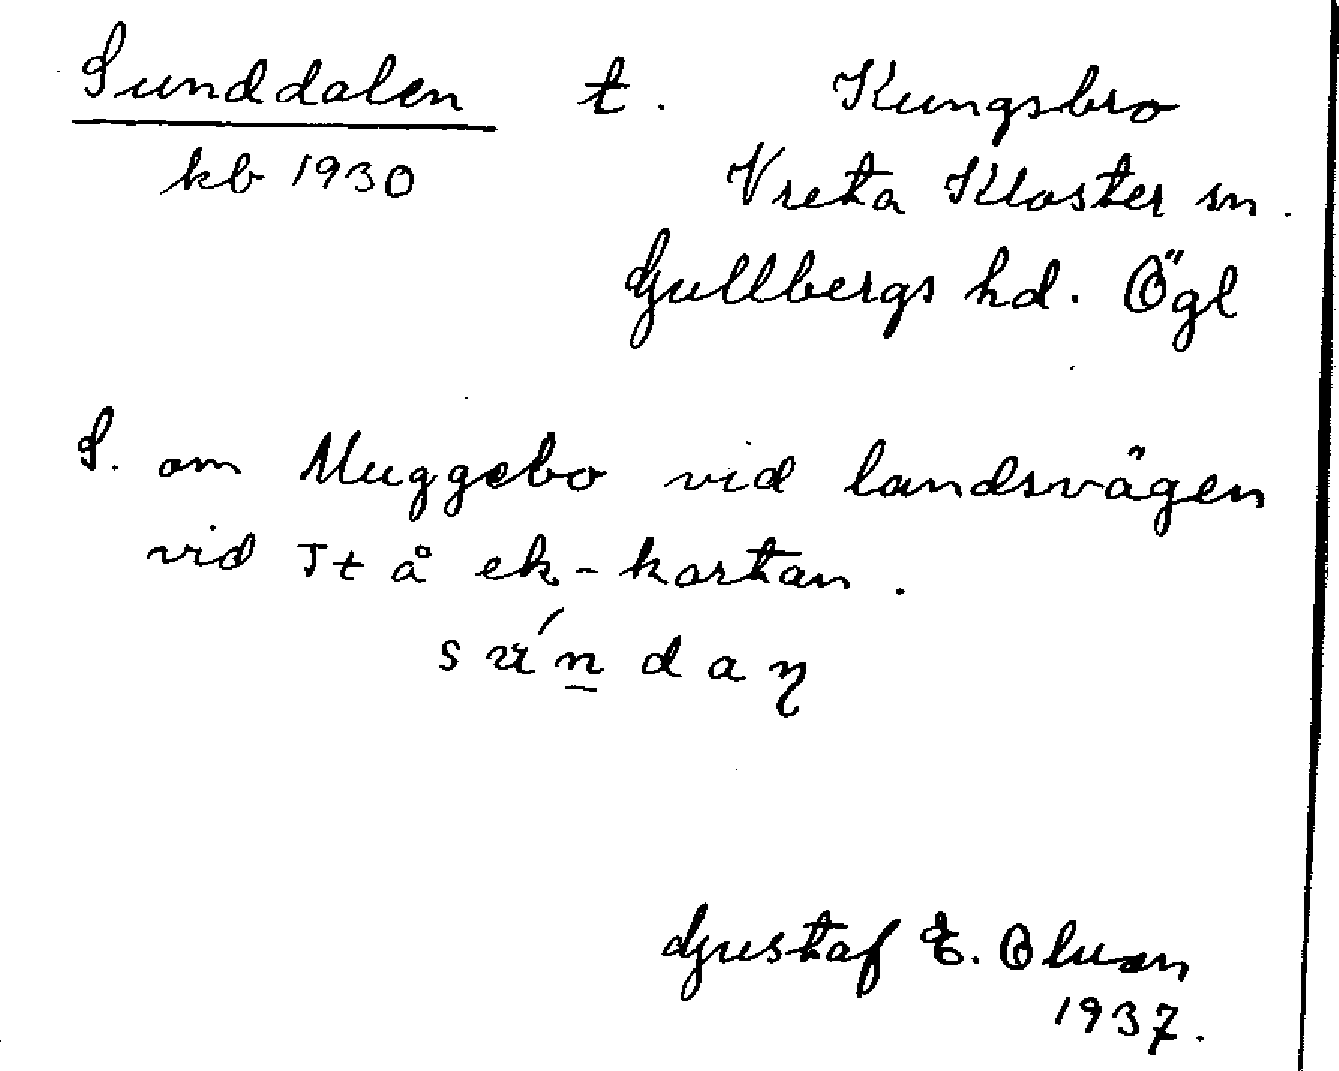 Sunddalen t. Kungsbro
kb 1930 Vreta Kloster sn.
Gullbergs hd. Ögl
S. om Muggebo vid landsvägen
vid Tt å ek-kartan.
sún̲daɳ
Gustaf E. Olson
1937.